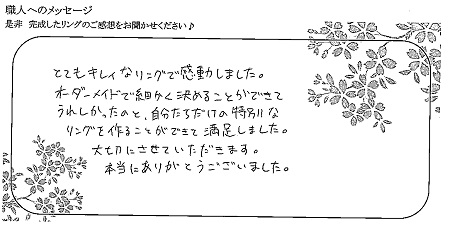 職人へのメッセージ
是非 完成したリングのご感想をお聞かせください♪
とてもキレイなリングで感動しました。
オーダーメイドで細かく決めることができて
うれしかったのと、自分たちだけの特別な
リングを作ることができて満足しました。
大切にさせていただきます。
本当にありがとうございました。